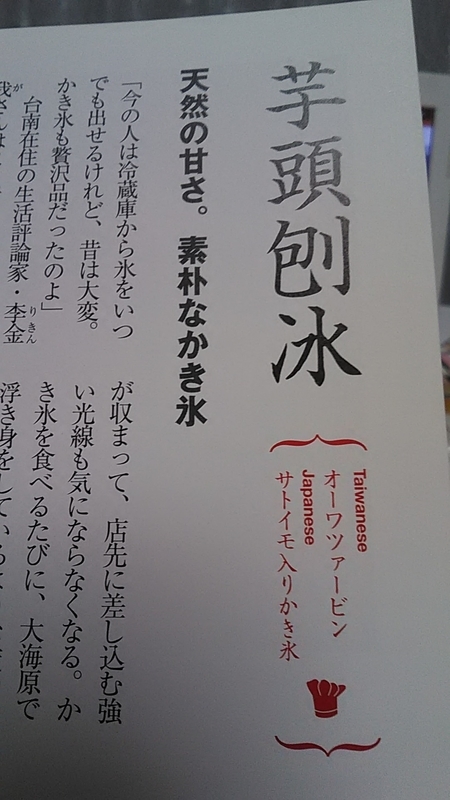 芋頭刨冰
Taiwanese
オーワツァービン
Japanese
サトイモ入りかき氷
天然の甘さ。素朴なかき氷
「今の人は冷蔵庫から氷をいつ
でも出せるけれど、昔は大変。
かき氷も贅沢品だったのよ」
台南在住の生活評論家・李金
りきん
が
我さんは
が収まって、店先に差し込む強
い光線も気にならなくなる。か
き氷を食べるたびに、大海原で
浮き身をしている